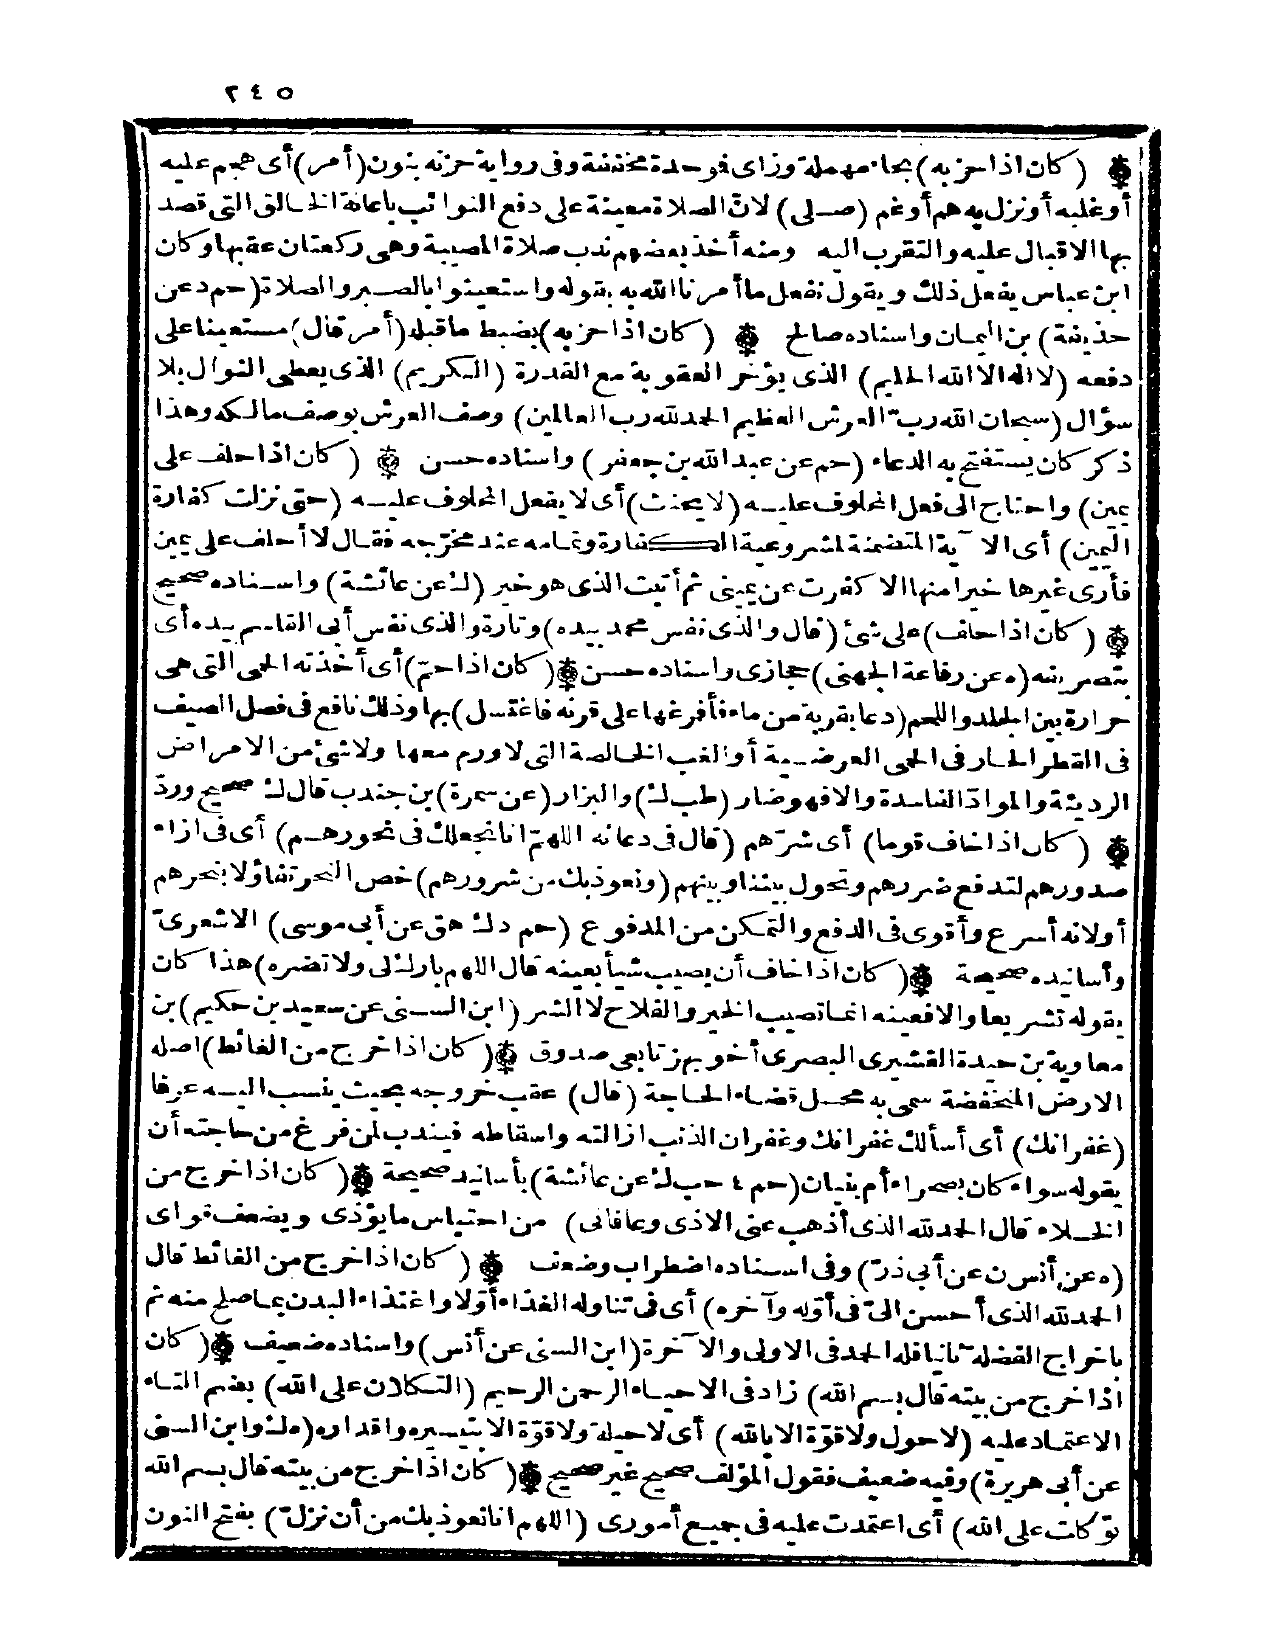 ٢٤٥
(كان اذا حزبه) بحاء مهملة وزاى فوحدة مخففة وفى رواية حزنه بنون (أمر) أى هجم عليه
أو غلبه أو نزل به هم أو غم (صلى) لانّ الصلاة معينة على دفع النوائب باعانة الخالق التى قصد
بها الاقبال عليه والتقرب اليه ومنه أخذ بعضهم ندب صلاة المصيبة وهى ركعتان عقبها وكان
ابن عباس يفعل ذلك ويقول نفعل ما أمرنا الله به بقوله واستعينوا بالصبر والصلاة (حم د عن
حذيفة) بن اليمان واسناده صالح (كان اذا حزبه) بضبط ما قبله (أمر قال) مستعينا على
دفعه (لا اله الا الله الحليم) الذى يؤخر العقوبة مع القدرة (الكريم) الذى يعطى النوال بلا
سؤال (سبحان الله ربّ العرش العظيم الحمد لله رب العالمين) وصف العرش بوصف مالكه وهذا
ذكر كان يستفتح به الدعاء (حم عن عبد الله بن جعفر) واسناده حسن (كان اذا حلف على
يمين) واحتاج الى فعل المحلوف عليه (لا يحنث) أى لا يفعل المحلوف عليه (حتى نزلت كفارة
اليمين) أى الآية المتضمنة لمشروعية الكفارة وتمامه عند مخرّجه فقال لا أحلف على يمين
فأرى غيرها خيرا منها الا كفرت عن يمينى ثم أتيت الذى هو خير (ك عن عائشة) واسناده صحيح
(كان اذا حلف) على شئ (قال والذى نفس محمد بيده) وتارة والذى نفس أبى القاسم بيده أى
بتصريفه (ه عن رفاعة الجهنى) حجازى واسناده حسن (كان اذا حمّ) أى أخذته الحمى التى هى
حرارة بين الجلد واللحم (دعا بقربة من ماء فأفرغها على قرنه فاغتسل) بها وذلك نافع فى فصل الصيف
فى القطر الحار فى الحمى العرضية أو الغب الخالصة التى لا ورم معها ولا شئ من الامراض
الرديئة والموادّ الفاسدة والا فهو ضار (طب ك) والبزار (عن سمرة) بن جندب قال ك صحيح وردّ
(كان اذا خاف قوما) أى شرّهم (قال فى دعائه اللهمّ انا نجعلك فى نحورهم) أى فى ازاء
صدورهم لتدفع ضررهم وتحول بيننا وبينهم (ونعوذ بك من شرورهم) خص النحر تفاؤلا بنحرهم
أو لانه أسرع وأقوى فى الدفع والتمكن من المدفوع (حم د ك هق عن أبى موسى) الاشعرىّ
وأسانيده صحيحة (كان اذا خاف أن يصيب شيأ بعينه قال اللهم بارك لى ولا تضره) هذا كان
يقوله تشريعا والا فعينه انما تصيب الخير والفلاح لا الشر (ابن السنى عن سعيد بن حكيم) بن
معاوية بن حيدة القشيرى البصرى أخو بهز تابعى صدوق (كان اذا خرج من الغائط) اصله
الارض المنخفضة سمى به محل قضاء الحاجة (قال) عقب خروجه بحيث ينسب اليه عرفا
(غفرانك) أى أسألك غفرانك وغفران الذنب ازالته واسقاطه فيندب لمن فرغ من حاجته أن
يقوله سواء كان بصحراء أم بنيان (حم ٤ حب ك عن عائشة) بأسانيد صحيحة (كان اذا خرج من
الخلاء قال الحمد لله الذى أذهب عنى الاذى وعافانى) من احتباس ما يؤذى ويضعف قواى
(ه عن أنس ن عن أبى ذرّ) وفى اسناده اضطراب وضعف (كان اذا خرج من الغائط قال
الحمد لله الذى أحسن الىّ فى أوّله وآخره) أى فى تناوله الغذاء أوّلا واغتذاء البدن بما صلح منه ثم
باخراج الفضلة ثانيا فله الحمد فى الاولى والآخرة (ابن السنى عن أنس) واسناده ضعيف (كان
اذا خرج من بيته قال بسم الله) زاد فى الاحياء الرحمن الرحيم (التكلان على الله) بضم التاء
الاعتماد عليه (لا حول ولا قوّة الا بالله) أى لا حيلة ولا قوّة الا بتيسيره واقداره (ه ك وابن السنى
عن أبى هريرة) وفيه ضعيف فقول المؤلف صحيح غير صحيح (كان اذا خرج من بيته قال بسم الله
توّكلت على الله) أى اعتمدت عليه فى جميع أمورى (اللهم انا نعوذ بك من أن نزلّ) بفتح النون